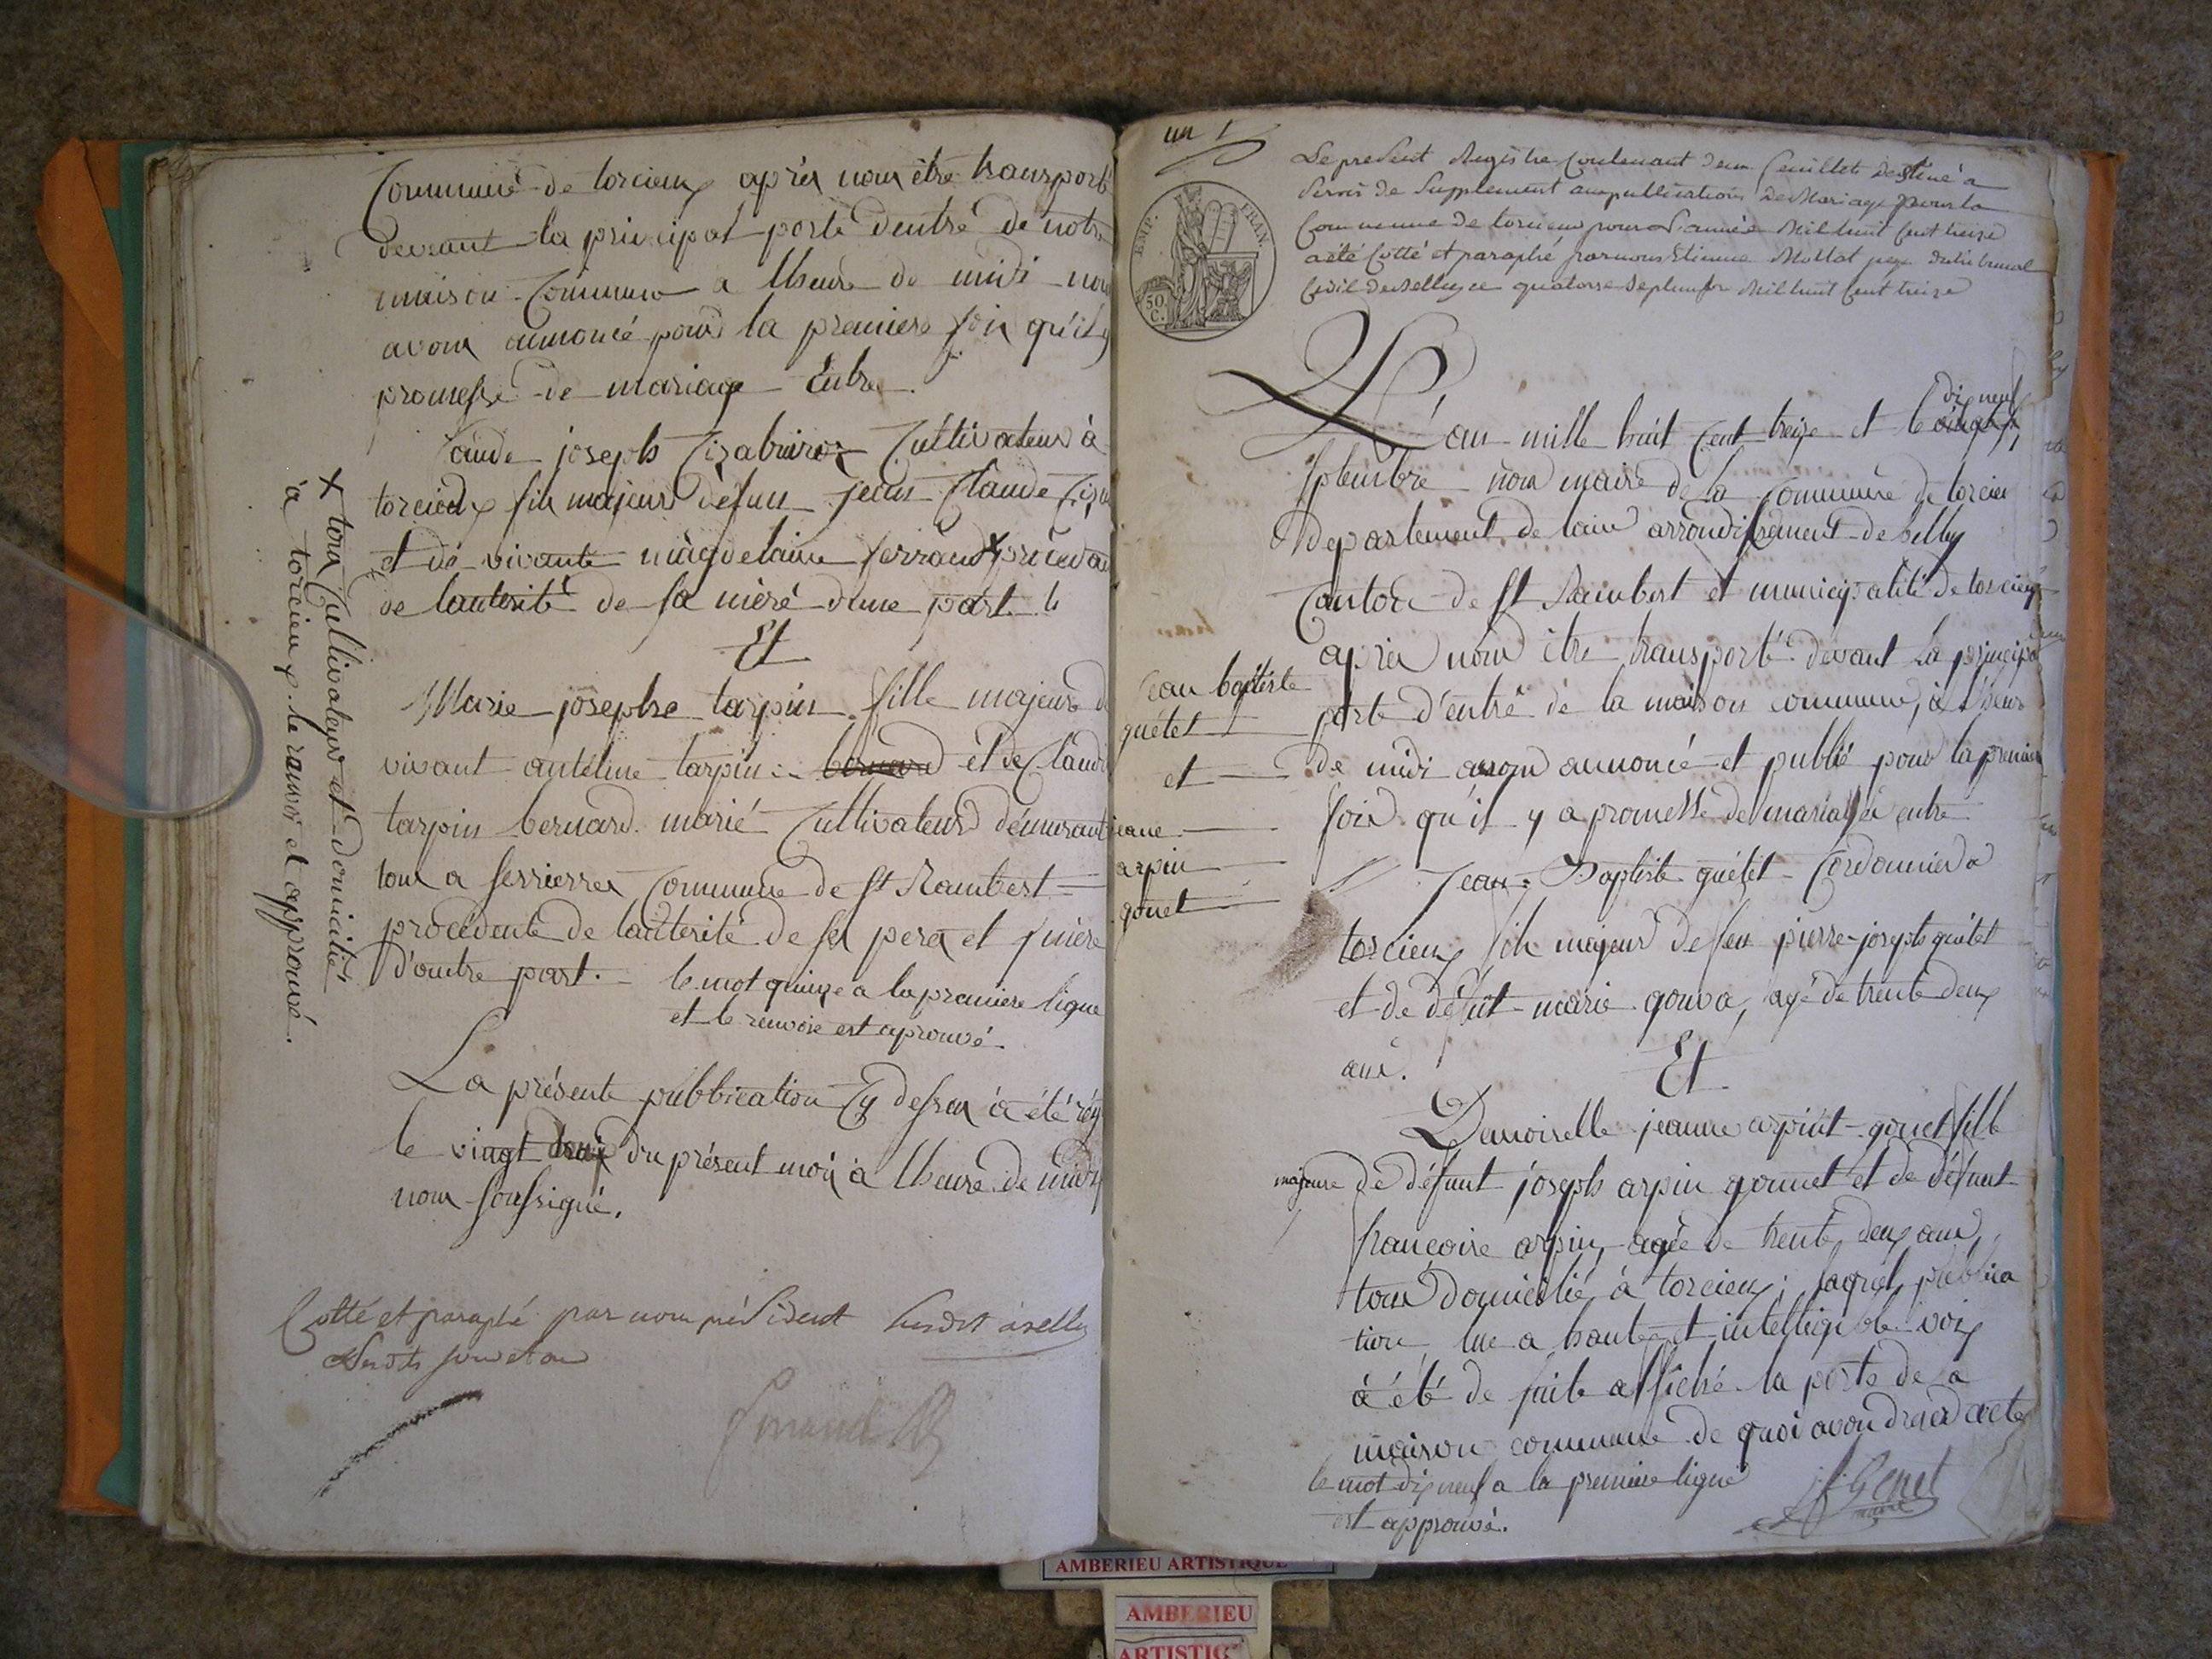 Commune de torcieux après nous être transporté
devant la principal porte dentré de notre
maison Commune a lheure de midi nous
avons annoncé pour la premiere fois qu'il y
promesse de mariage Entre
Claude joseph Cultivateur à
torcieux fils majeur défun jean Claude
et de vivante magdelaine ferrand X procédant
de lautorité de sa mère d'une part
Et
Marie josephe tarpin fille majeure de
vivant antelme tarpin et de Claudi
tarpin bernard marié Cultivateur démurant
tous a serrierres Commune de St Rambert
procédente de lautorité de ses perex et mère
d'outre part.
le mot quinze a la premiere ligne
et le renvoie est aprouvé.
La présente publication Cy dessus à été
le vingt du présent mois à lheure de midy
nous soussigné.
Cotté et paraphé par nous président
X tous Cultivateur et domicilié
à torcieux le ranvoi et approuvé.
un 1
Le present Registre Contenant deux feuillets destiné a
servir de Supplement aux publications de Mariage pour la
Commune de torcieux pour L'année Mil huit Cent treize
a été Cotté et paraphé par nous Etienne Mollat juge du tribunal
Civil de Belley ce quatorze Septembre Mil huit Cent treize
EMP. FRAN.
50 C.
dix neuf
L'an mille huit Cent treize et le
septembre nous maire de la Commune de torcieu
departement de lain arrondissement de belley
Canton de St Rambert et municipalité de torcieux
après nous être transporté devant la principal
porte d'entré de la maison commune, à l'heure
de midi avons annoncé et publié pour la premiere
fois qu'il y a promesse de mariage entre
jean baptiste
guétet
et
jeane
arpin
gonet
Jean-Baptiste guétet Cordonnier a
torcieux fils majeur de feu pierre-joseph guétet
et de défunt marie gouva, agé de trente deux
ans.
Et
Demoiselle jeanne arpint-gonet fille
majeure de défunt joseph arpin gonnet et de défunt
françoise arpin, agée de trente deux ans,
tous domicilié à torcieux; laquel publica
tion lue a haute et intelligible voix
à été de suite affiché la porte de la
maison commune de quoi avon dressé acte
le mot dix neuf a la premiere ligne
est approuvé.
Genet
maire
AMBERIEU ARTISTIQUE
AMBERIEU
ARTISTIC